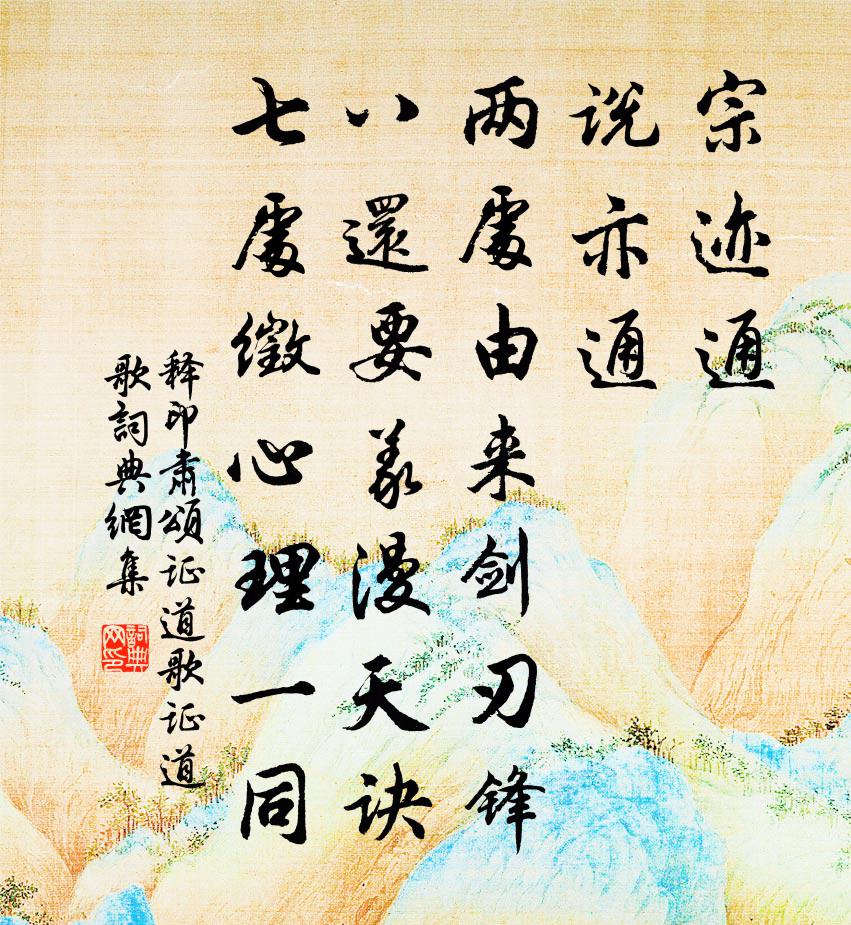 宗迹通
说亦通
两處由来剑刃锋
八還要義漫天诀
七處徵心理一同
释印肃颂证道歌证道
歌詞典網集
詞典
网印